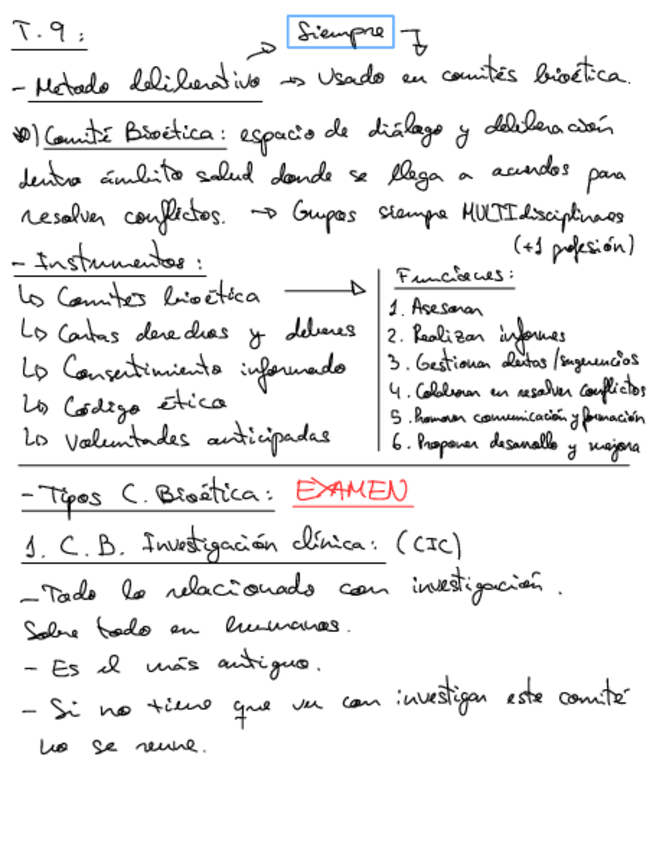 T.9:
Siempre
- Metodo deliberativo → Usado en comités bioética.
Comité Bioética: espacio de diálogo y deliberación
dentro ámbito salud donde se llega a acuerdos para
resolver conflictos. → Grupos siempre MULTIdisciplinares
(+1 profesión)
- Instrumentos:
↳ Comités bioética →
↳ Cartas derechos y deberes
↳ Consentimiento informado
↳ Código ética
↳ Voluntades anticipadas
Funciones:
1. Asesorar
2. Realizar informes
3. Gestionar alertas/sugerencias
4. Colaborar en resolver conflictos
5. Promover comunicación y formación
6. Proponer desarrollo y mejora
- Tipos C. Bioética: EXAMEN
1. C. B. Investigación clínica: (CIC)
- Todo lo relacionado con investigación.
Sobre todo en humanos.
- Es el más antiguo.
- Si no tiene que ver con investigar este comité
no se reune.